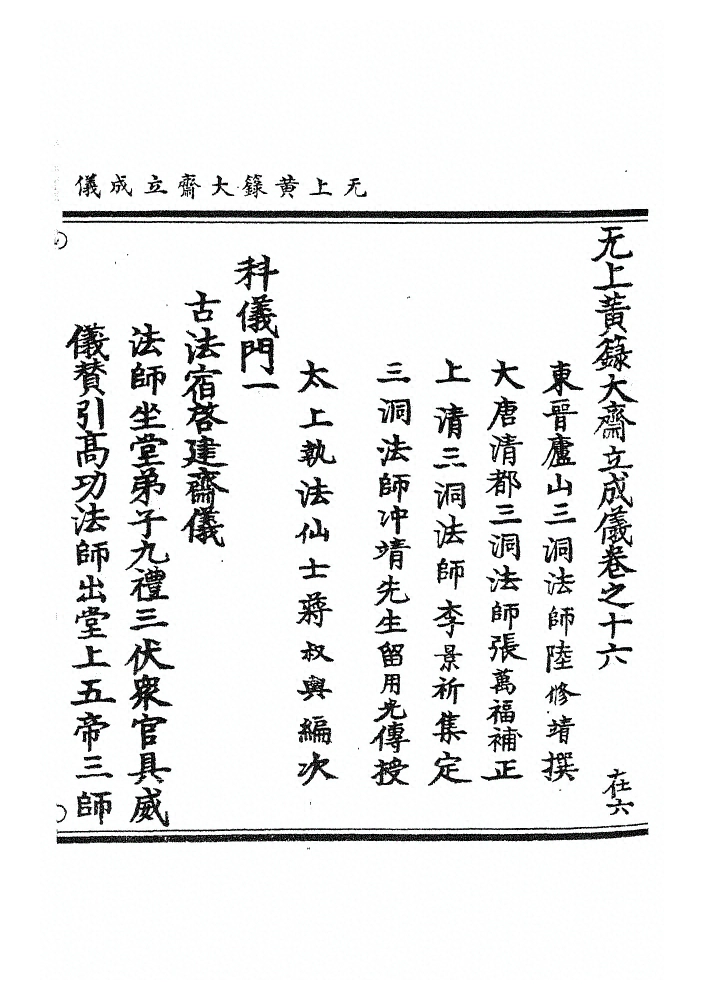 无上黄籙大齋立成儀
无上黄籙大齋立成儀卷之十六
在六
東晉廬山三洞法師陸修靖撰
大唐清都三洞法師張萬福補正
上清三洞法師李景祈集定
三洞法師冲靖先生留用光傳授
太上執法仙士蔣叔輿編次
科儀門一
古法宿啓建齋儀
法師坐堂弟子九禮三伏衆官具威
儀賛引高功法師出堂上五帝三師